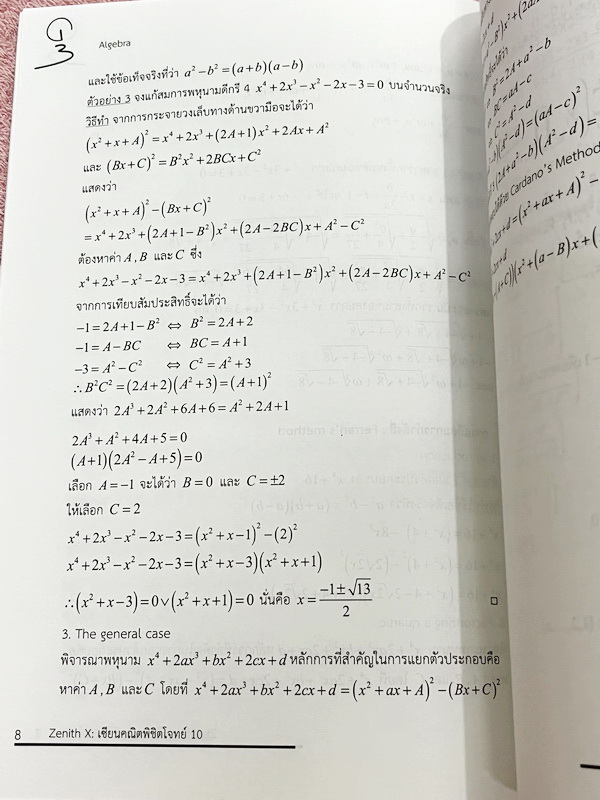 Algebra
และใช้ข้อเท็จจริงที่ว่า a² − b² = (a+b)(a−b)
ตัวอย่าง 3 จงแก้สมการพหุนามดีกรี 4 x⁴ + 2x³ − x² − 2x − 3 = 0 บนจำนวนจริง
วิธีทำ จากการกระจายวงเล็บทางด้านขวามือจะได้ว่า
(x² + x + A)² = x⁴ + 2x³ + (2A+1)x² + 2Ax + A²
และ (Bx + C)² = B²x² + 2BCx + C²
แสดงว่า
(x² + x + A)² − (Bx + C)²
= x⁴ + 2x³ + (2A+1−B²)x² + (2A−2BC)x + A² − C²
ต้องหาค่า A, B และ C ซึ่ง
x⁴ + 2x³ − x² − 2x − 3 = x⁴ + 2x³ + (2A+1−B²)x² + (2A−2BC)x + A² − C²
จากการเทียบสัมประสิทธิ์จะได้ว่า
−1 = 2A+1−B² ⇔ B² = 2A+2
−1 = A−BC ⇔ BC = A+1
−3 = A²−C² ⇔ C² = A²+3
∴ B²C² = (2A+2)(A²+3) = (A+1)²
แสดงว่า 2A³ + 2A² + 6A + 6 = A² + 2A + 1
2A³ + A² + 4A + 5 = 0
(A+1)(2A² − A + 5) = 0
เลือก A = −1 จะได้ว่า B = 0 และ C = ±2
ให้เลือก C = 2
x⁴ + 2x³ − x² − 2x − 3 = (x² + x − 1)² − (2)²
x⁴ + 2x³ − x² − 2x − 3 = (x² + x − 3)(x² + x + 1)
∴ (x² + x − 3) = 0 ∨ (x² + x + 1) = 0 นั่นคือ x = (−1 ± √13)/2 □
3. The general case
พิจารณาพหุนาม x⁴ + 2ax³ + bx² + 2cx + d หลักการที่สำคัญในการแยกตัวประกอบคือ
หาค่า A, B และ C โดยที่ x⁴ + 2ax³ + bx² + 2cx + d = (x² + ax + A)² − (Bx + C)²
8 Zenith X: เซียนคณิตพิชิตโจทย์ 10
B² = 2A + a² − b
BC = aA − c
C² = A² − d
(A² − d) = (aA − c)²
(2A + a² − b)(A² − d) =
Cardano's Method
+ 2cx + d = (x² + ax + A)² −
(x² + (a − B)x + (